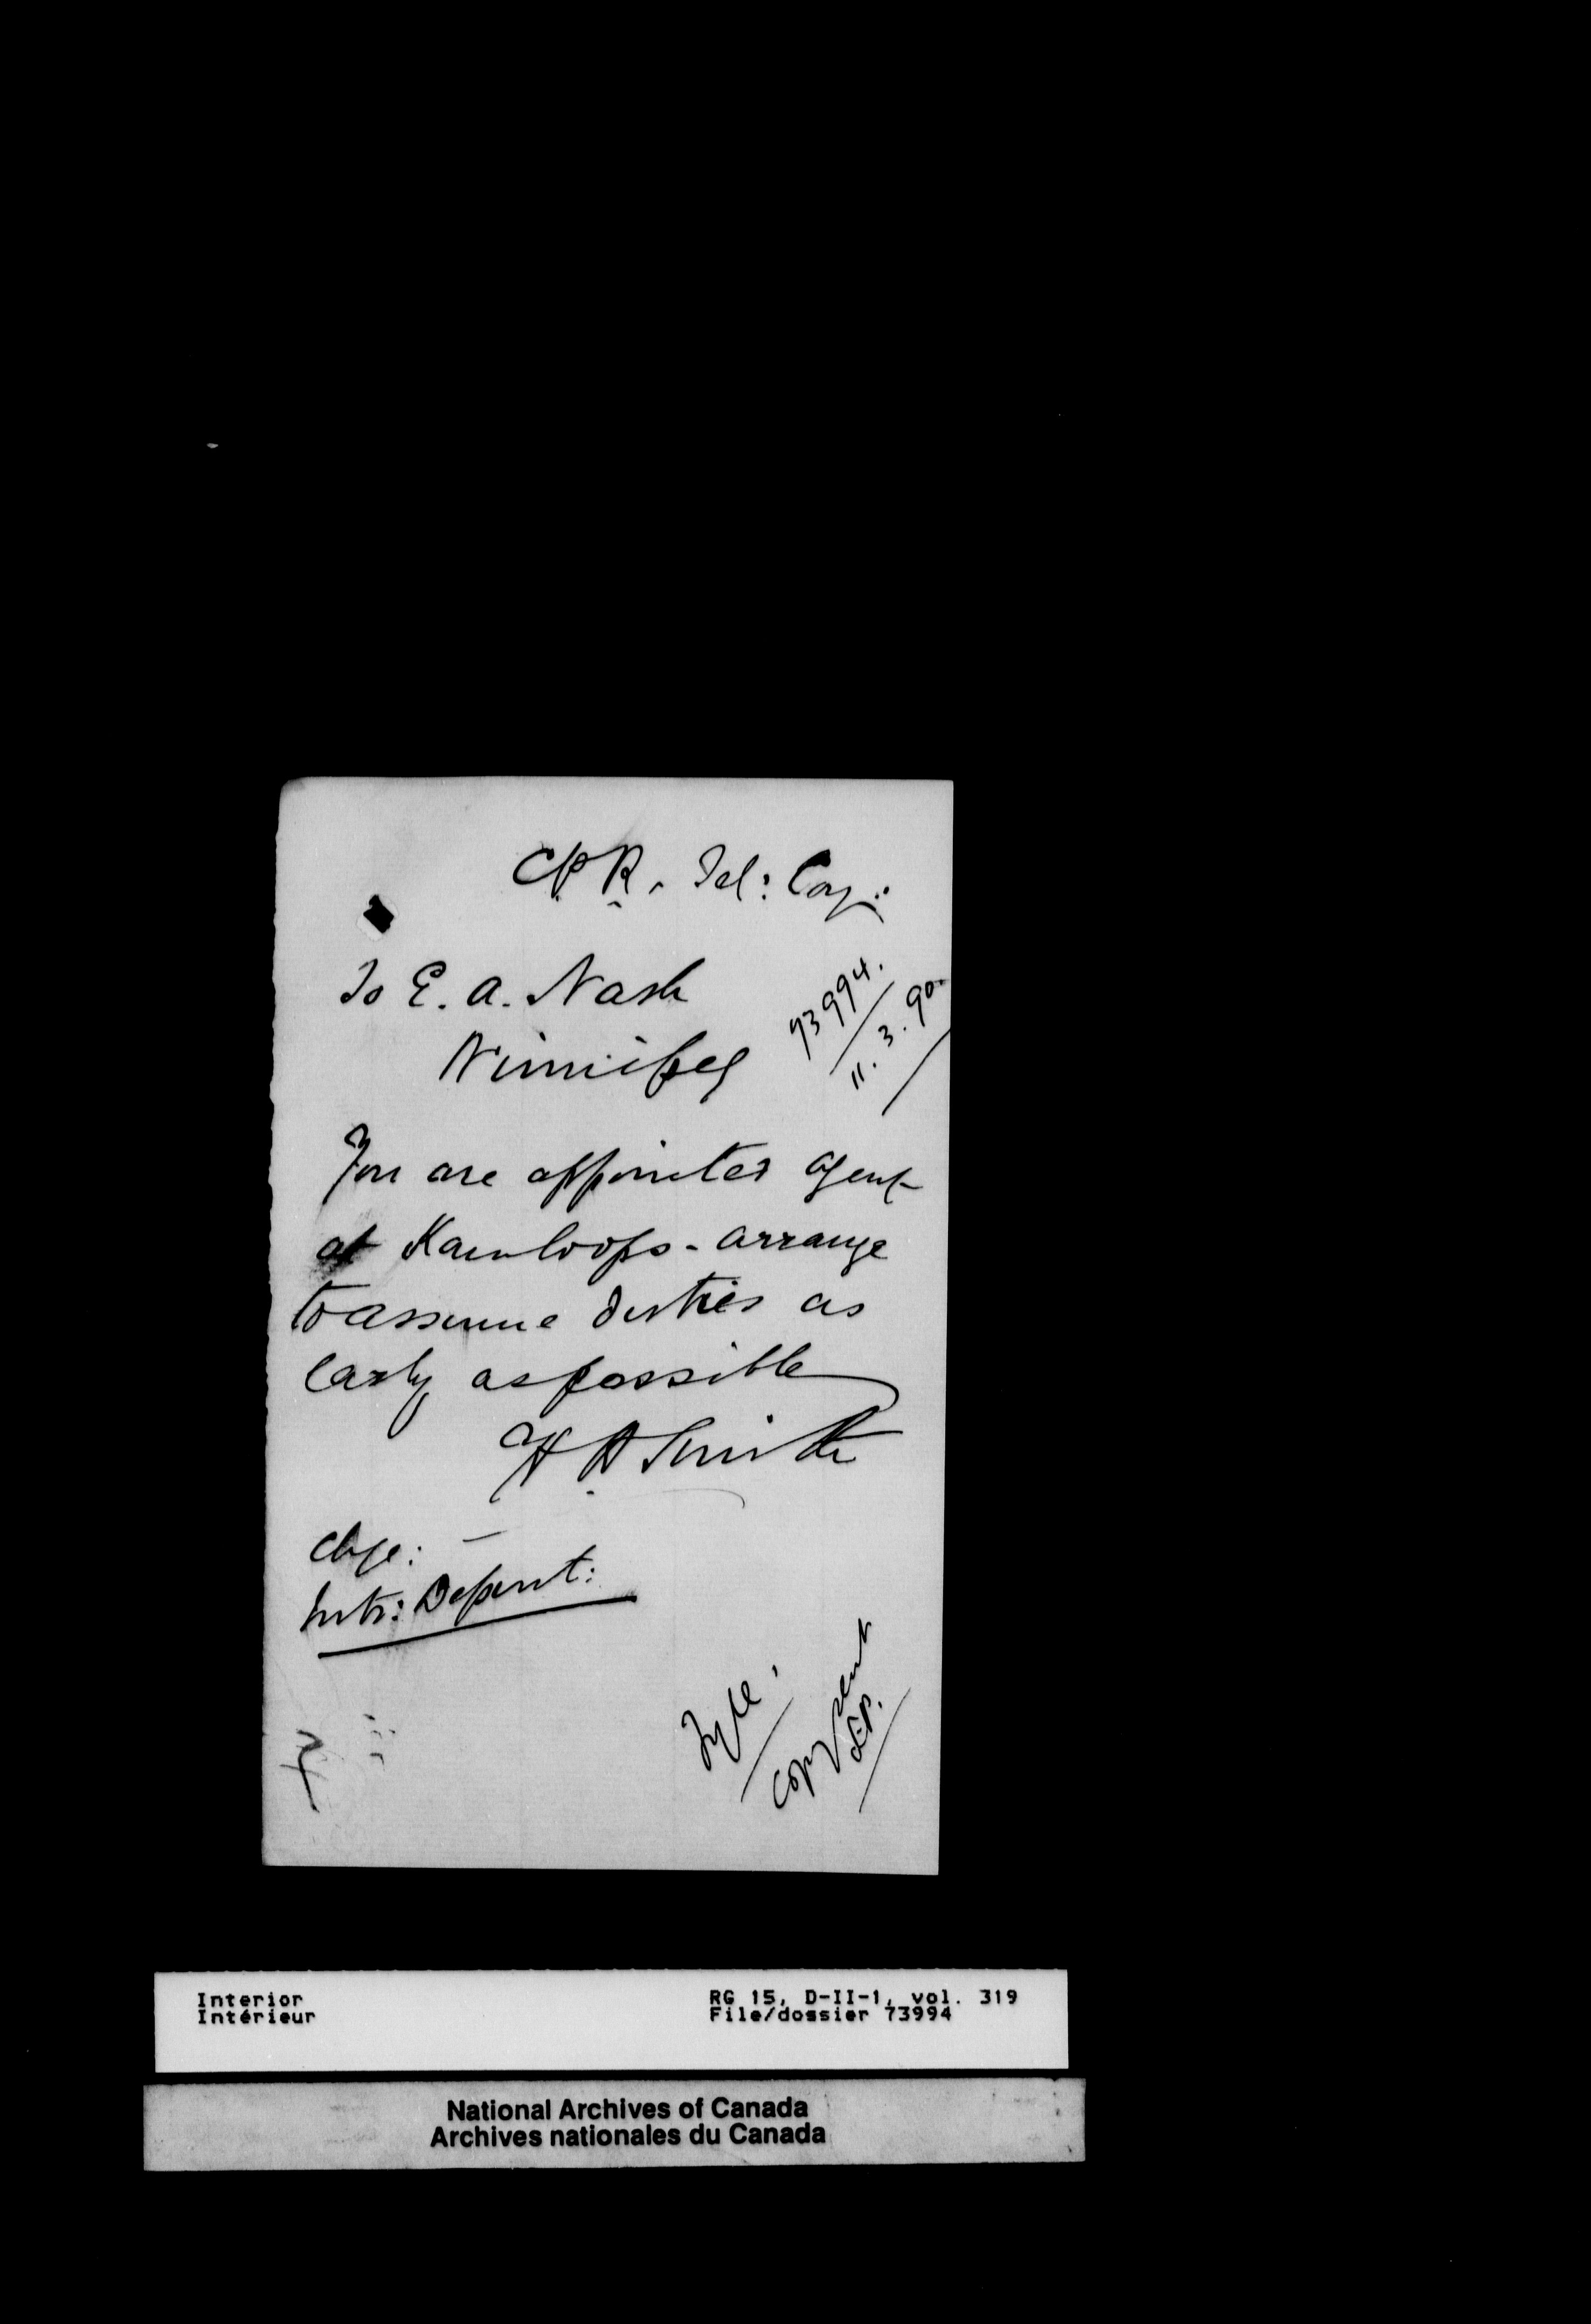 C.P.R. Tel: Coy:
To E. A. Nash
Winnipeg
73994.
11. 3. 90.
You are appointed agent
at Kamloops - arrange
to assume duties as
early as possible
H H Smith
Chge: -
Intr: Depart:
Fyle.
Copy sent
Interior
Intérieur
RG 15, D-II-1, vol. 319
File/dossier 73994
National Archives of Canada
Archives nationales du Canada